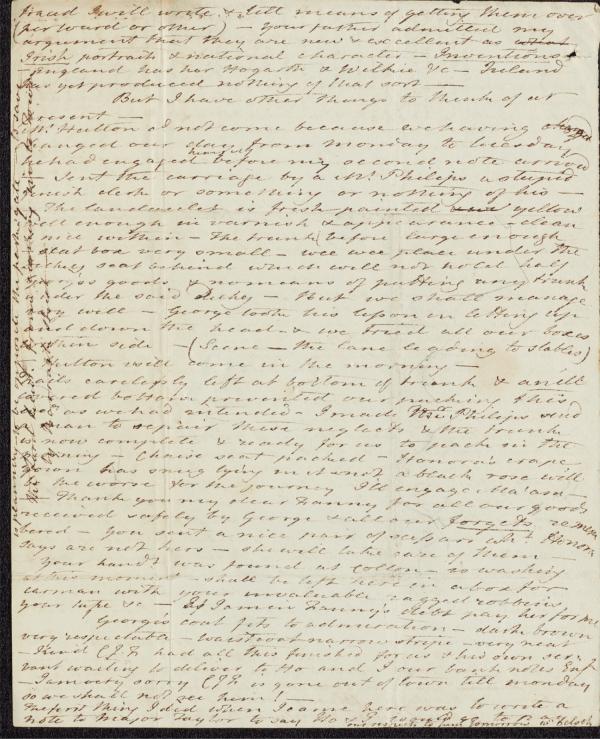 Fraud I will write & tell means of getting them over
per Ward or other) – Your father admitted my
argument that they are new & excellent as
Irish portraits & national character – Inventions
– England has her Hogarth & Wilkie &c – Ireland
has yet produced nothing of that sort –
But I have other things to think of at
present –
Mr. Hutton did not come because we having
changed our day from Monday to Tuesday
he had engaged himself before my second note arrived
– Sent the carriage by a Mr. Philips a stupid
clerk or something or nothing of his –
The landaulet is fresh painted yellow
well enough in varnish & appearance – clean
& nice within – The trunk before large enough
seat box very small – wee wee place under the
dickey seat behind which will not hold half
George's goods & no means of putting any trunk
under the said Dickey – But we shall manage
very well – George took his lesson in letting up
and down the head – & we tried all our boxes
within side – (Scene – the lane leading to stables)
Hutton will come in the morning –
nails carelessly left at bottom of trunk & an ill
bottom prevented our packing this
as we had intended – I made Mr. Philips send
man to repair these neglects & the trunk
now complete & ready for us to pack in the
morning – Chaise seat packed – Honora's crape
gown has snug lying in it & not a black rose will
be the worse for the journey I'll engage Ma'am –
– Thank you my dear Fanny for all our goods
received safely by George & all our forgets remem
bered – You sent a nice pair of scissars wh. Honora
says are not hers – she will take care of them –
Your handf was found at Collon – is washing
at this moment – shall be left here in a box for
carman with your invaluable ragged robbins
your tape &c – I am in Fanny's debt pay her for me
George's coat fits to admiration – dark brown
very respectable – waistcoat narrow stripe – very neat
– Kind CJF had all this finished for us & his own ser
vant waiting to deliver to Ho and I our bank notes
– I am very sorry CJF is gone out of town till Monday
so we shall not see him! –
The first thing I did when I came here was to write a
note to Major Taylor to say